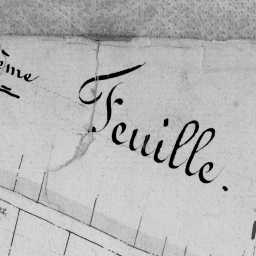 ème Feuille.